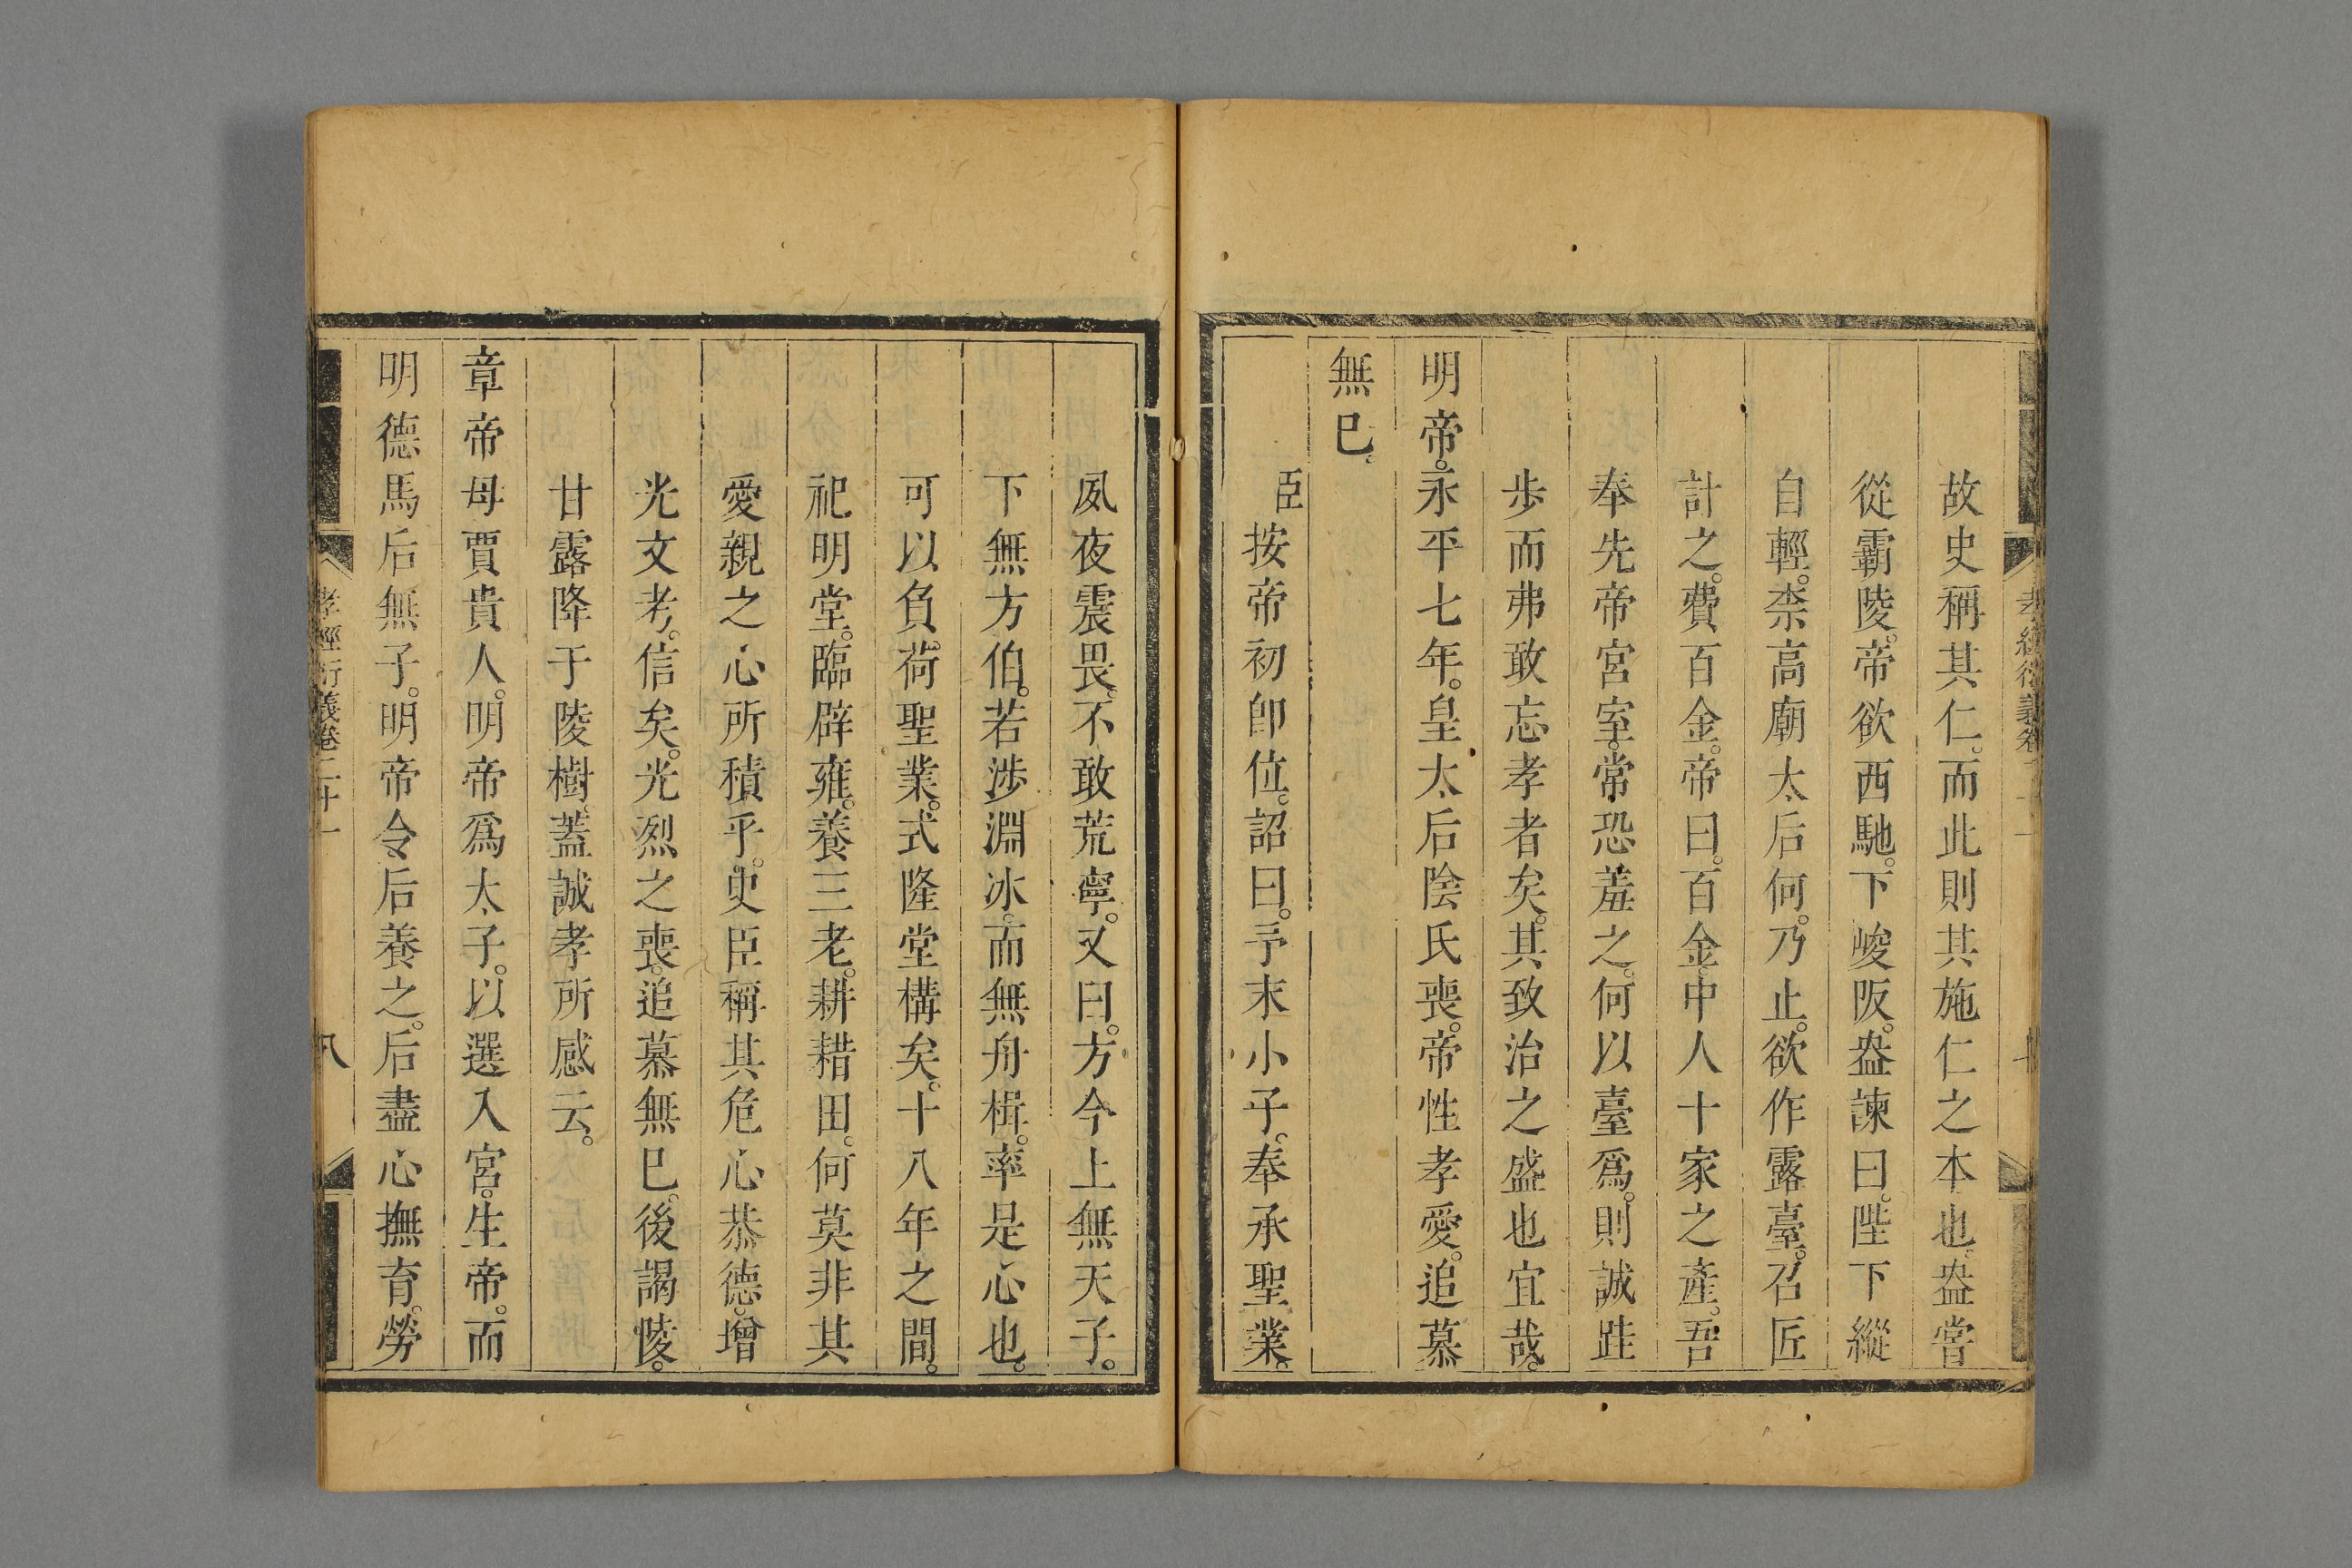 故史稱其仁。而此則其施仁之本也。盎嘗
從霸陵。帝欲西馳。下峻阪。盎諫曰。陛下縱
自輕。柰高廟太后何。乃止。欲作露臺。召匠
計之。費百金。帝曰。百金。中人十家之產。吾
奉先帝宮室。常恐羞之。何以臺爲。則誠跬
步而弗敢忘孝者矣。其致治之盛也宜哉。
明帝。永平七年。皇太后陰氏喪。帝性孝愛。追慕
無已。
臣按帝初卽位。詔曰。予末小子。奉承聖業。
夙夜震畏。不敢荒寧。又曰。方今上無天子。
下無方伯。若涉淵冰。而無舟楫。率是心也。
可以負荷聖業。式隆堂構矣。十八年之間。
祀明堂。臨辟雍。養三老。耕耤田。何莫非其
愛親之心所積乎。史臣稱其危心恭德。增
光文考。信矣。光烈之喪。追慕無已。後謁陵。
甘露降于陵樹。蓋誠孝所感云。
章帝母賈貴人。明帝爲太子。以選入宮。生帝。而
明德馬后無子。明帝令后養之。后盡心撫育。勞
孝經衍義卷二十一
八